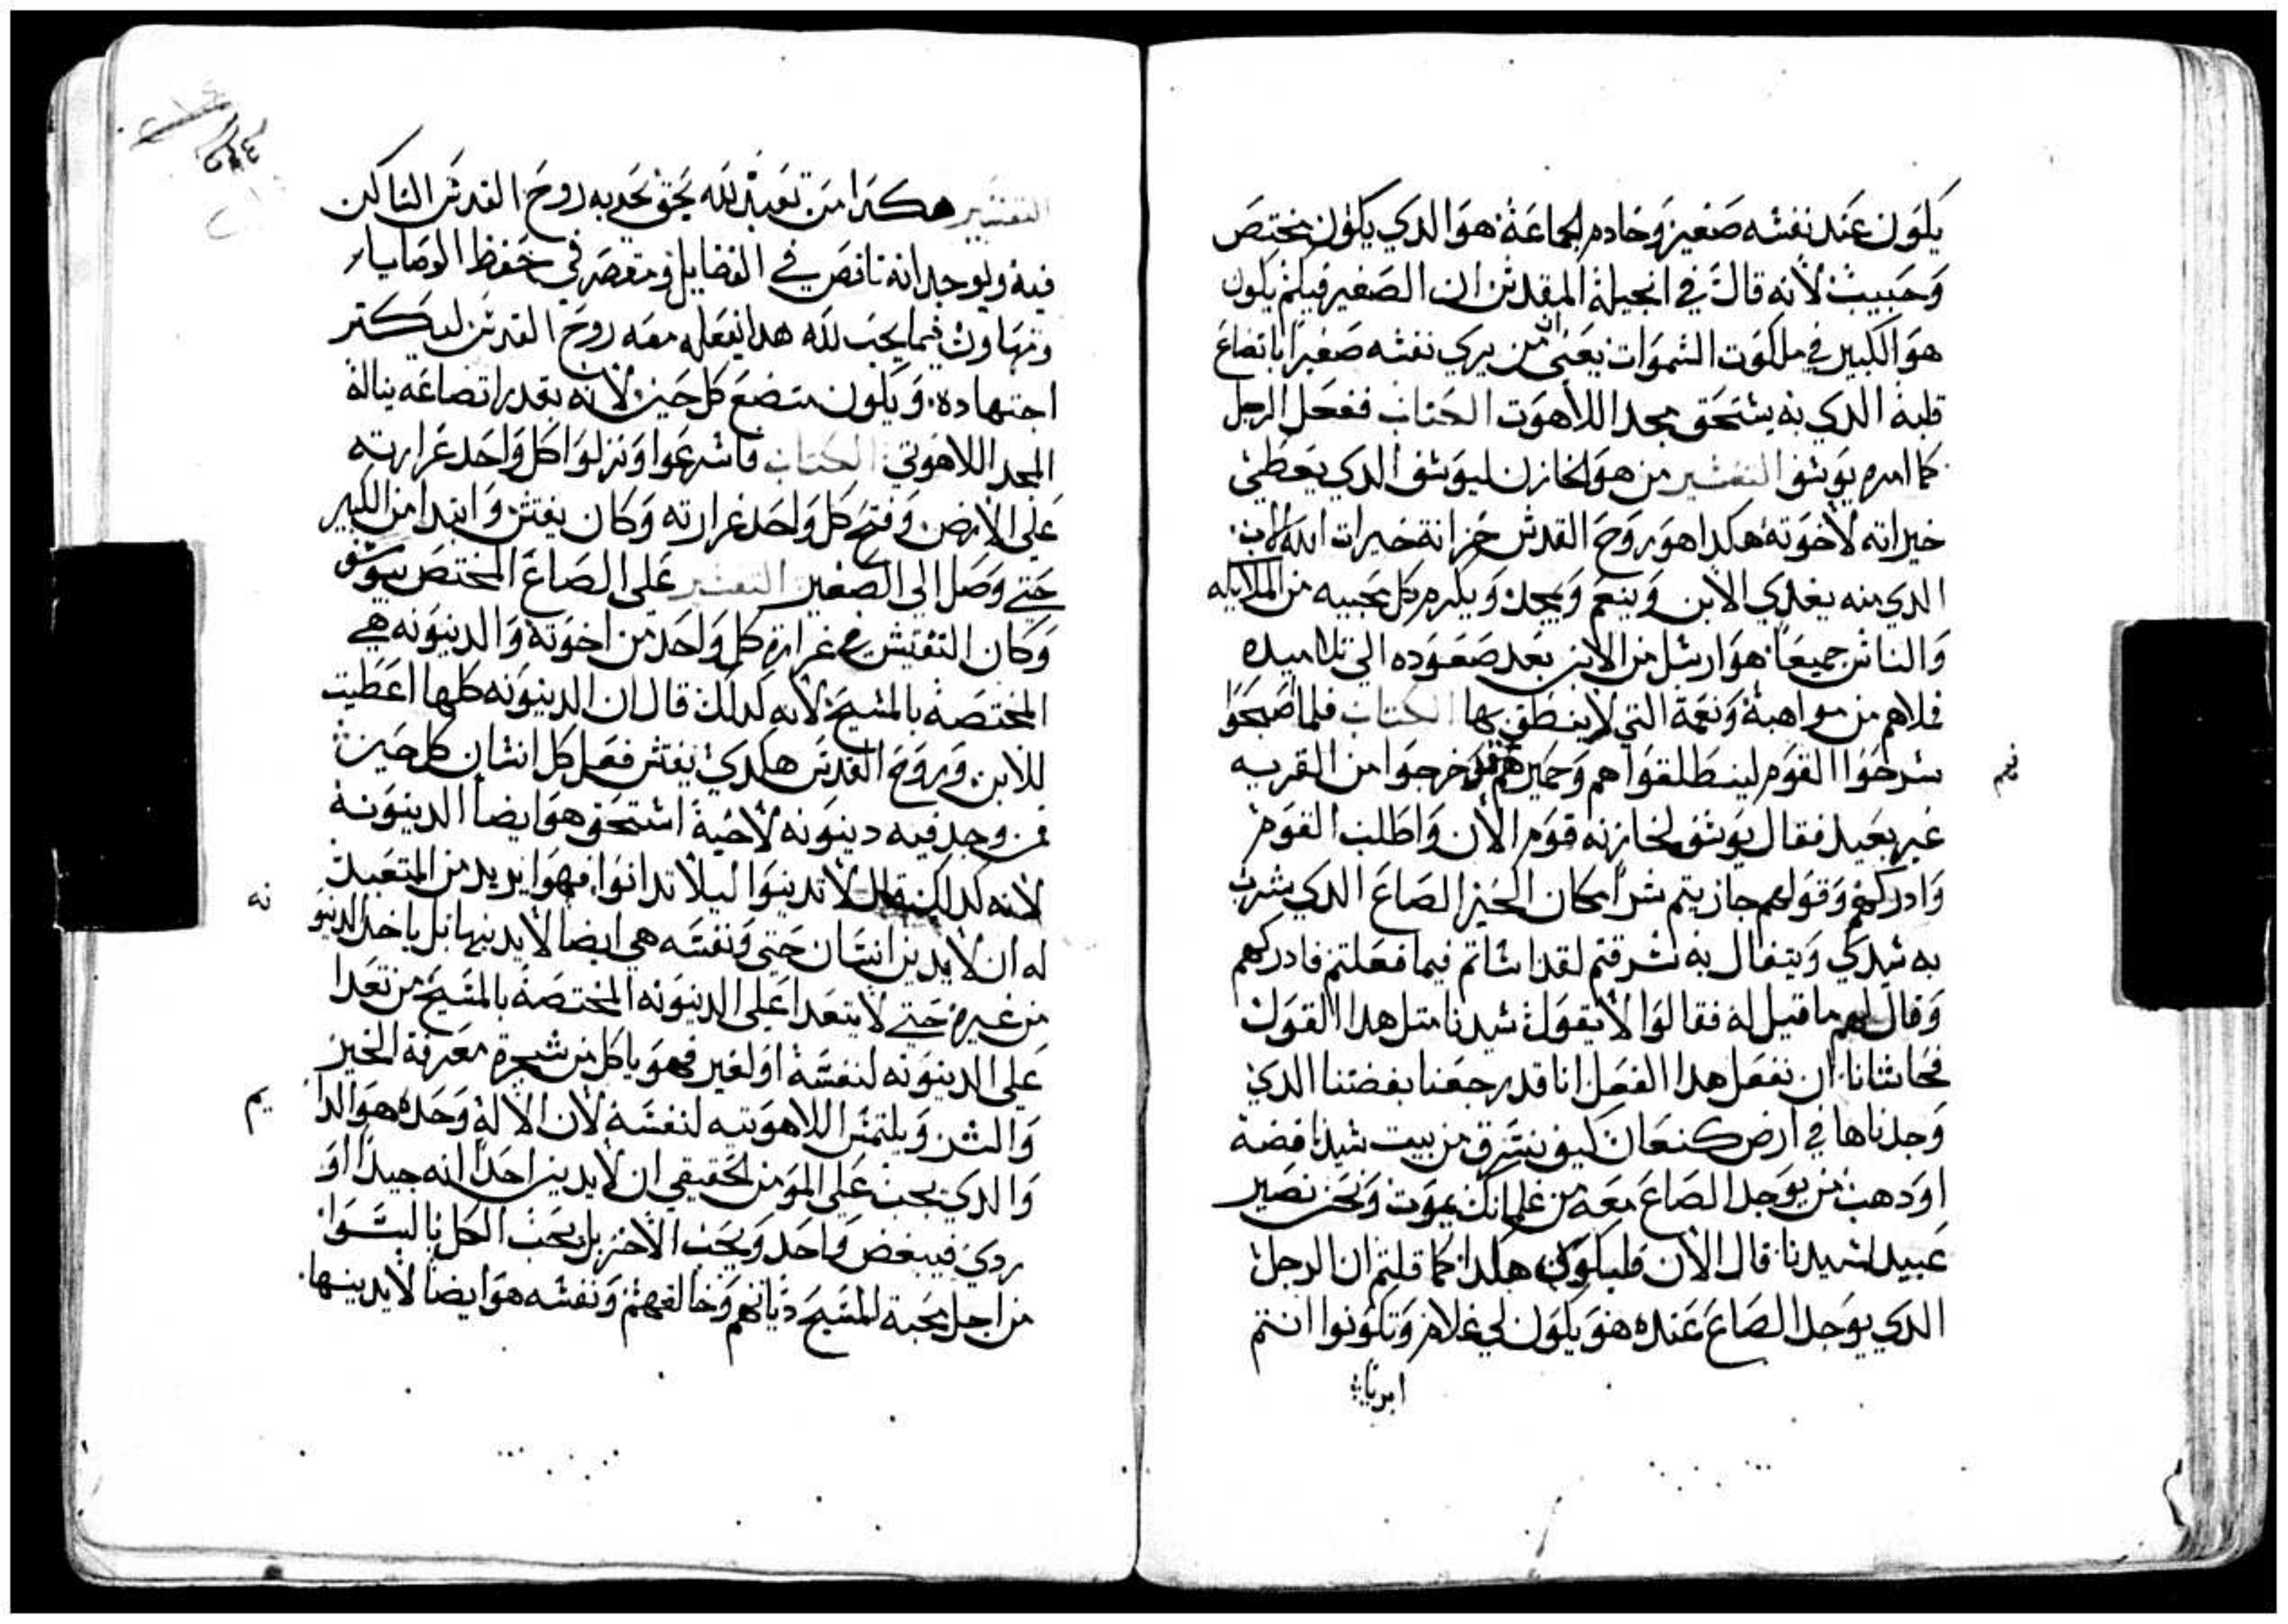 يكون عند نفسه صغير وخادم لجماعة هو الدي يكون مختص
وحبيب لأنه قال في انجيله المقدس ان الصغير فيكم يكون
هو الكبير في ملكوت السموات يعنى ان من يرى نفسه صغيرا باتضاع
قلبه الدي به يستحق مجد اللاهوت الكتاب ففعل الرجل
كما امره يوسف التفسير من هو الخازن ليوسف الدي يعطي
خيراته لأخوته هكدا هو روح القدس خزانة خيرات الله الاب
الدي منه يغدي الابن وينعم ويمجد ويكرم كل محبيه من الملايكه
والناس جميعا هو ارسل من الابن بعد صعوده الي تلاميده
فملاهم من مواهبه ونعمة التي لا ينطق بها الكتاب فلما اصبحوا
سرحوا القوم لينطلقوا هم وحميرهم فخرجوا من القريه
غير بعيد فقال يوسف لخازنه قوم الأن واطلب القوم
وادركهم وقولهم جازيتم شرا مكان الخير الصاع الدي شرب
به سيدي ويتفال به سرقتم لقد اساتم فيما فعلتم فادركهم
وقال لهم ما قيل له فقالوا لأ يقول سيدنا متل هدا القول
فحاشانا ان نفعل هدا الفعل انا قد رجعنا بفضتنا الدي
وجدناها في ارض كنعان كيف نسرق من بيت سيدنا فضة
او دهب من يوجد الصاع معه من غلمانك يموت ونحن نصير
عبيد لسيدنا قال الأن فليكون هكدا كما قلتم ان الرجل
الدي يوجد الصاع عنده هو يكون لي غلام وتكونوا انتم
ابريا
التفسير هكدا من تعبد لله بحق يحد به روح القدس الساكن
فيه ولو وجد انه ناقص في الفضايل ومقصر في حفظ الوصايا
وتهاون فيما يجب لله هدا يفعله معه روح القدس ليكتر
اجتهاده ويكون متضع كل حين لأنه بقدر اتضاعه يناله
المجد اللاهوتي الكتاب فاسرعوا ونزلوا كل واحد غرارته
علي الارض وفتح كل واحد غرارته وكان يفتش وابتدا من الكبير
حتي وصل الي الصغير التفسير علي الصاع المختص بيوسف
وكان التفتيش في غرارة كل واحد من اخوته والدينونه هي
المختصة بالمسيح لأنه كدلك قال ان الدينونه كلها اعطيت
للأبن وروح القدس هكدي يفتش فعل كل انسان كل حين
فمن وجد فيه دينونه لأخية استحق هو ايضا الدينونة
لأنه كدلك قال لأ تدينوا ليلأ تدانوا فهو ايريد من المتعبد
له ان لأ يدين انسان حتي ونفسه هي ايضا لأ يدينها بل ياخد الدينو نه
من غيره حتي لأ يتعدا على الدينونه المختصة بالمسيح من تعدا
علي الدينونه لنفسه او لغير فهو ياكل من شجرة معرفة الخير
والشر ويلتمس اللاهوتيه لنفسه لأن الألة وحده هو الدا يم
والدي يجب علي المومن الحقيقي ان لأ يدين احدا انه جيدا او
ردي فيبغض واحد ويحب الأخر بل يحب الكل بالسوا
من اجل محبة المسيح ديانهم وخالقهم ونفسه هو ايضا لأ يدينها